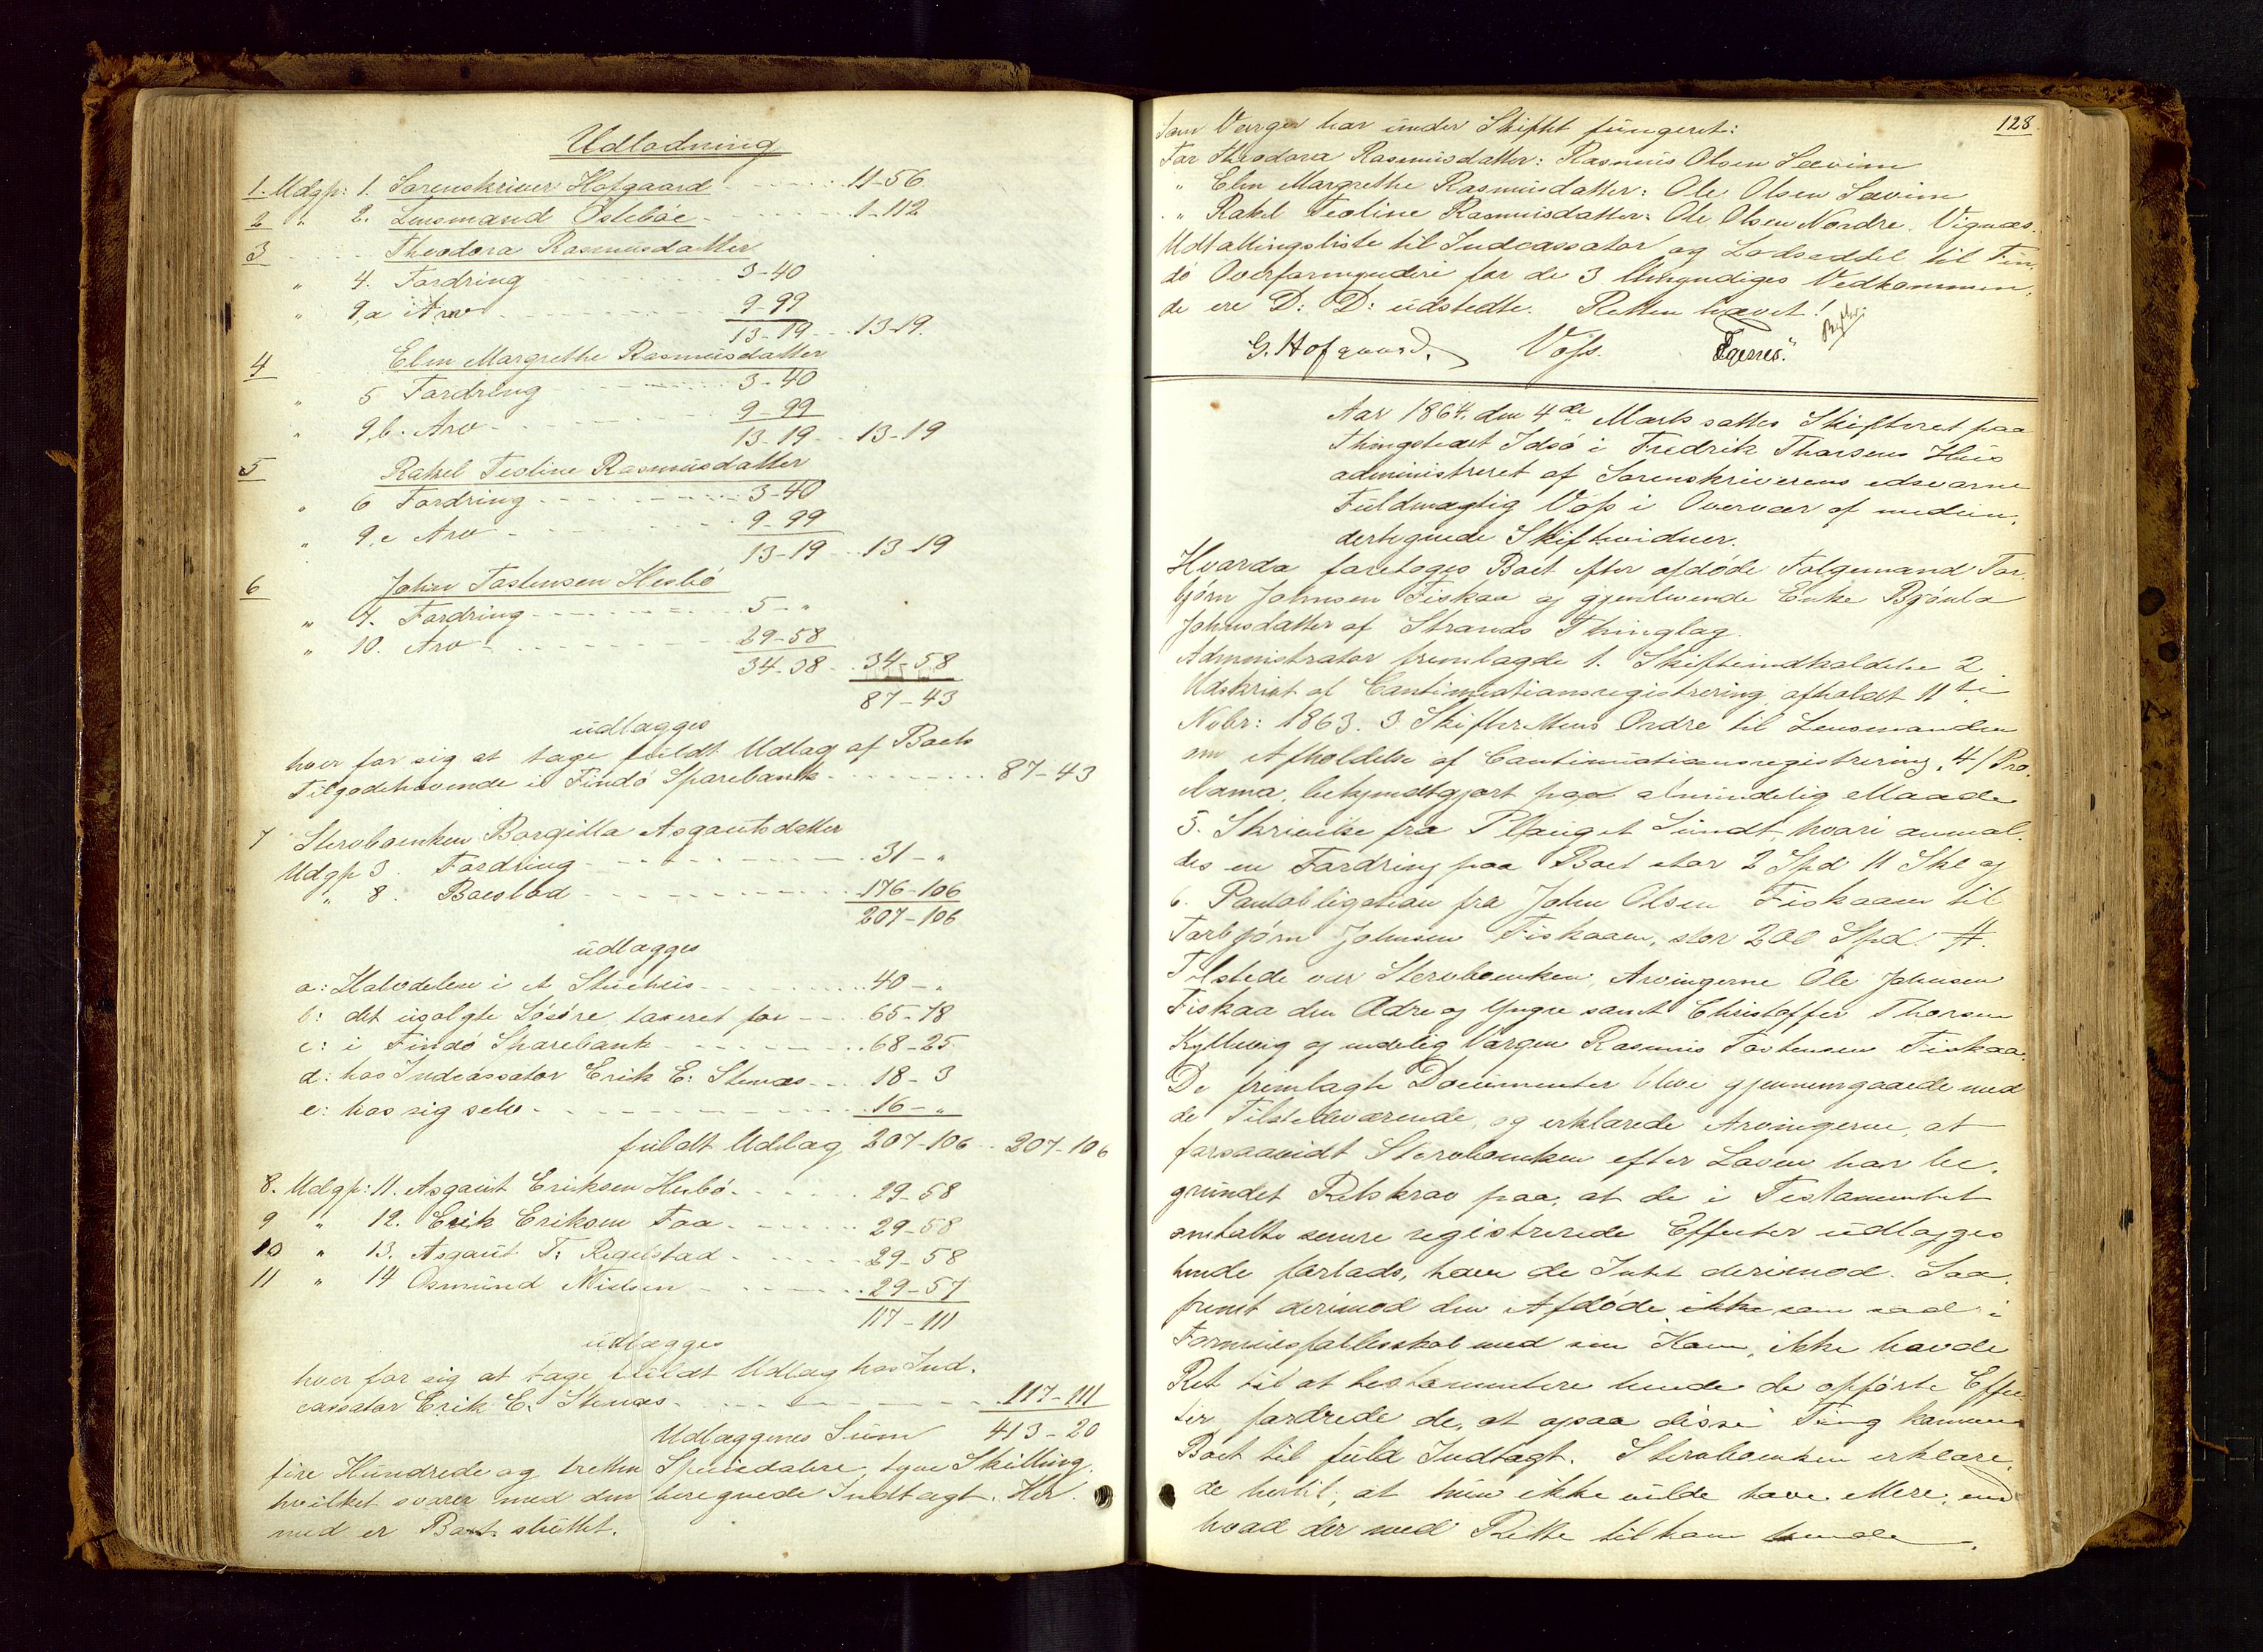 Udlodning
1. Udgp: 1. Sorenskriver Hofgaard 11-56
2 " 2. Lensmand Østebøe 1-112
3 Theodora Rasmusdatter
" 4. Fordring 3-40
" 9,a Arv 9-99
13-19 13-19.
4 Elen Margrethe Rasmusdatter
" 5 Fordring 3-40
" 9,b. Arv 9-99
13-19 13-19
5 Rakel Teoline Rasmusdatter
" 6 Fordring 3-40
" 9,c Arv 9-99
13-19 13-19
6 John Tostensen Hesbø
" 7. Fordring 5-"
" 10. Arv 29-58
34-58 34-58
87-43
udlægges
hver for sig at tage fuldt Udlag af Boets
Tilgodehavende i Findø Sparebank 87-43
7 Stervboenken Borgilla Asgautsdatter
Udgp 3. Fordring 31-"
" 8. Boeslod 176-106
207-106
udlægges
a: Halvdelen i et Stuehus 40-"
b: det usolgte Løsøre, taxeret for 65-78
c: i Findø Sparebank 68-25
d: hos Indcassator Erik E: Stenæs 18-3
e: hos sig selv 16-"
fuldt Udlag 207-106 207-106
8. Udgp: 11. Asgaut Eriksen Hesbø 29-58
9 " 12. Erik Eriksen Faa 29-58
10 " 13. Asgaut T: Regelstad 29-58
11 " 14 Osmund Nielsen 29-57
117-111
udlægges
hver for sig at tage fuldt Udlag hos Ind-
cassator Erik E. Stenæs 117-111
Udlæggenes Sum 413-20
fire Hundrede og tretten Speciedalere, tyve Skilling.
hvilket svarer med den beregnede Indtægt. Her-
med er Boet sluttet.
128
Som Værger har under Skiftet fungeret:
For Theodora Rasmusdatter: Rasmus Olsen Sævim
" Elen Margrethe Rasmusdatter: Ole Olsen Sævim
" Rakel Teoline Rasmusdatter: Ole Olsen Nordre Vignæs.
Udtallingsliste til Indcassator og Lodseddel til Fin-
dø Overformynderi for de 3 Umyndiges Vedkommen-
de ere D: D: udstedte. Retten hævet!
G. Hofgaard. Voss.
Aar 1864, den 4de Marts sattes Skifteret paa
Thingstedet Idsø i Fredrik Thorsens Huus
administreret af Sorenskriverens edsvorne
Fuldmægtig Voss i Overvær af nedun-
dertegnede Skiftevidner.
Hvorda foretoges Boet efter afdøde Folgemand Tor-
bjørn Johnsen Fiskaa og gjenlevende Enke Bjønla
Johnsdatter af Strands Thinglag.
Administrator fremlagde 1. Skifteindkaldelse 2
Udskrivt af Continuationsregistrering, afholdt 11te
Novbr: 1863. 3 Skifterettens Ordre til Lensmanden
om Afholdelse af Continuationsregistrering, 4/ Pro-
clama, bekjendtgjort paa almindelig Maade
5. Skrivelse fra P Lauget Sundt, hvori anmel-
des en Fordring paa Boet stor 2 Spd 11 Skl og
6. Pantobligation fra John Olsen Fiskaaen til
Torbjørn Johnsen Fiskaaen, stor 200 Spd.
Tilstede var Stervboenken, Arvingerne Ole Johnsen
Fiskaa den Ældre og Yngre samt Christoffer Thorsen
Kyllevig og endelig Værgen Rasmus Tostensen Fiskaa.
De fremlagte Documenter bleve gjennemgaaede med
de Tilstedeværende, og erklærede Arvingerne, at
forsaavidt Stervboenken efter Loven har be-
grundet Retskrav paa, at de i Testamentet
omtalte senere registrerede Effecter udlægges
hende forlods, have de Intet derimod. Saa-
fremt derimod den Afdøde, ikke som sad i
Formuesfællesskab med sin Kone, ikke havde
Ret til at testamentere hende de opførte Effec-
ter fordrede de, at ogsaa disse Ting kommer
Boet til fuld Indtægt. Stervboenken erklære-
de hertil, at hun ikke vilde have Mere, end
hvad der med Rette tilkom hende.